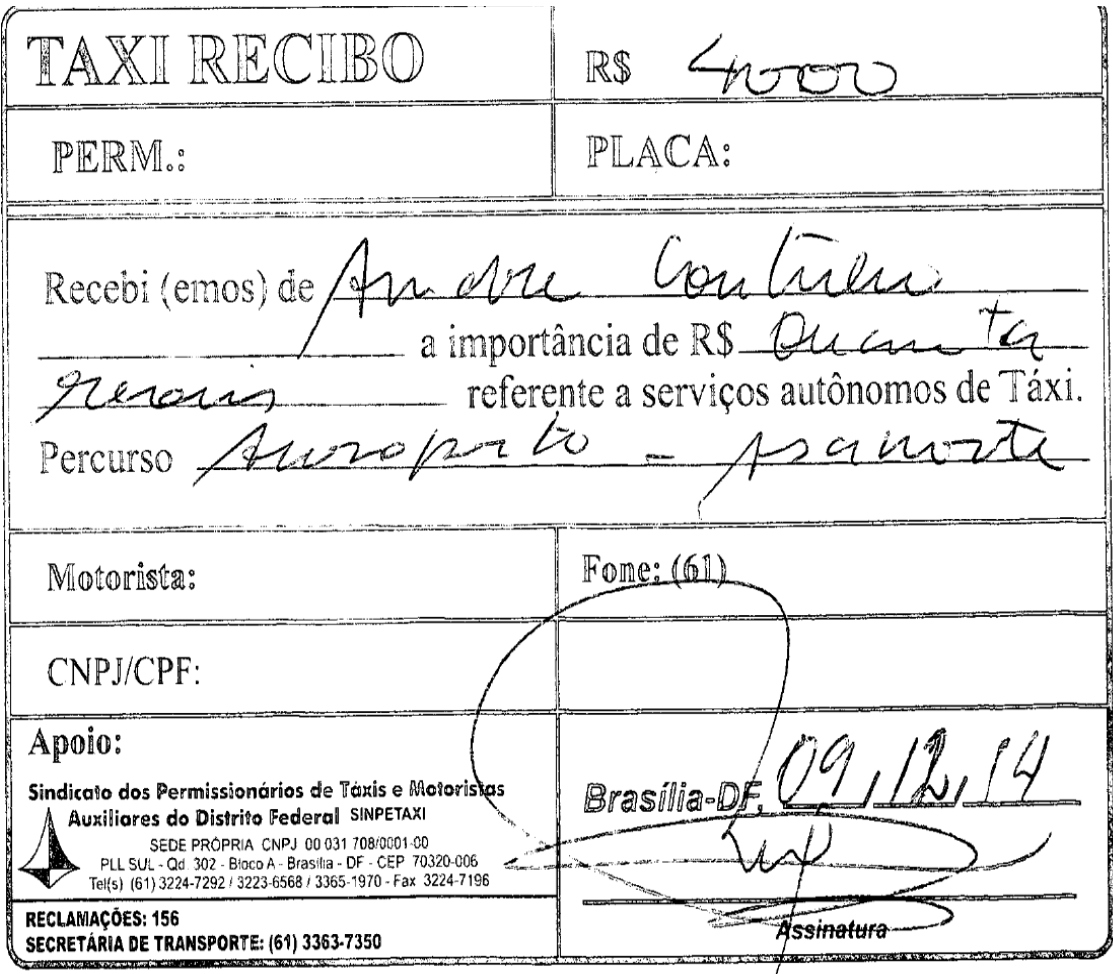 TAXI RECIBO
R$ 4000
PERM.:
PLACA:
Recebi (emos) de Andre
a importância de R$ Quarenta
reais referente a serviços autônomos de Táxi.
Percurso Aeroporto - Asa norte
Motorista:
Fone: (61)
CNPJ/CPF:
Apoio:
Sindicato dos Permissionários de Táxis e Motoristas
Auxiliares do Distrito Federal SINPETAXI
SEDE PRÓPRIA CNPJ 00 031 708/0001-00
PLL SUL - Qd. 302 - Bloco A - Brasília - DF - CEP 70320-006
Tel(s) (61) 3224-7292 / 3223-6568 / 3365-1970 - Fax 3224-7196
RECLAMAÇÕES: 156
SECRETÁRIA DE TRANSPORTE: (61) 3363-7350
Brasília-DF, 09, 12, 14
Assinatura